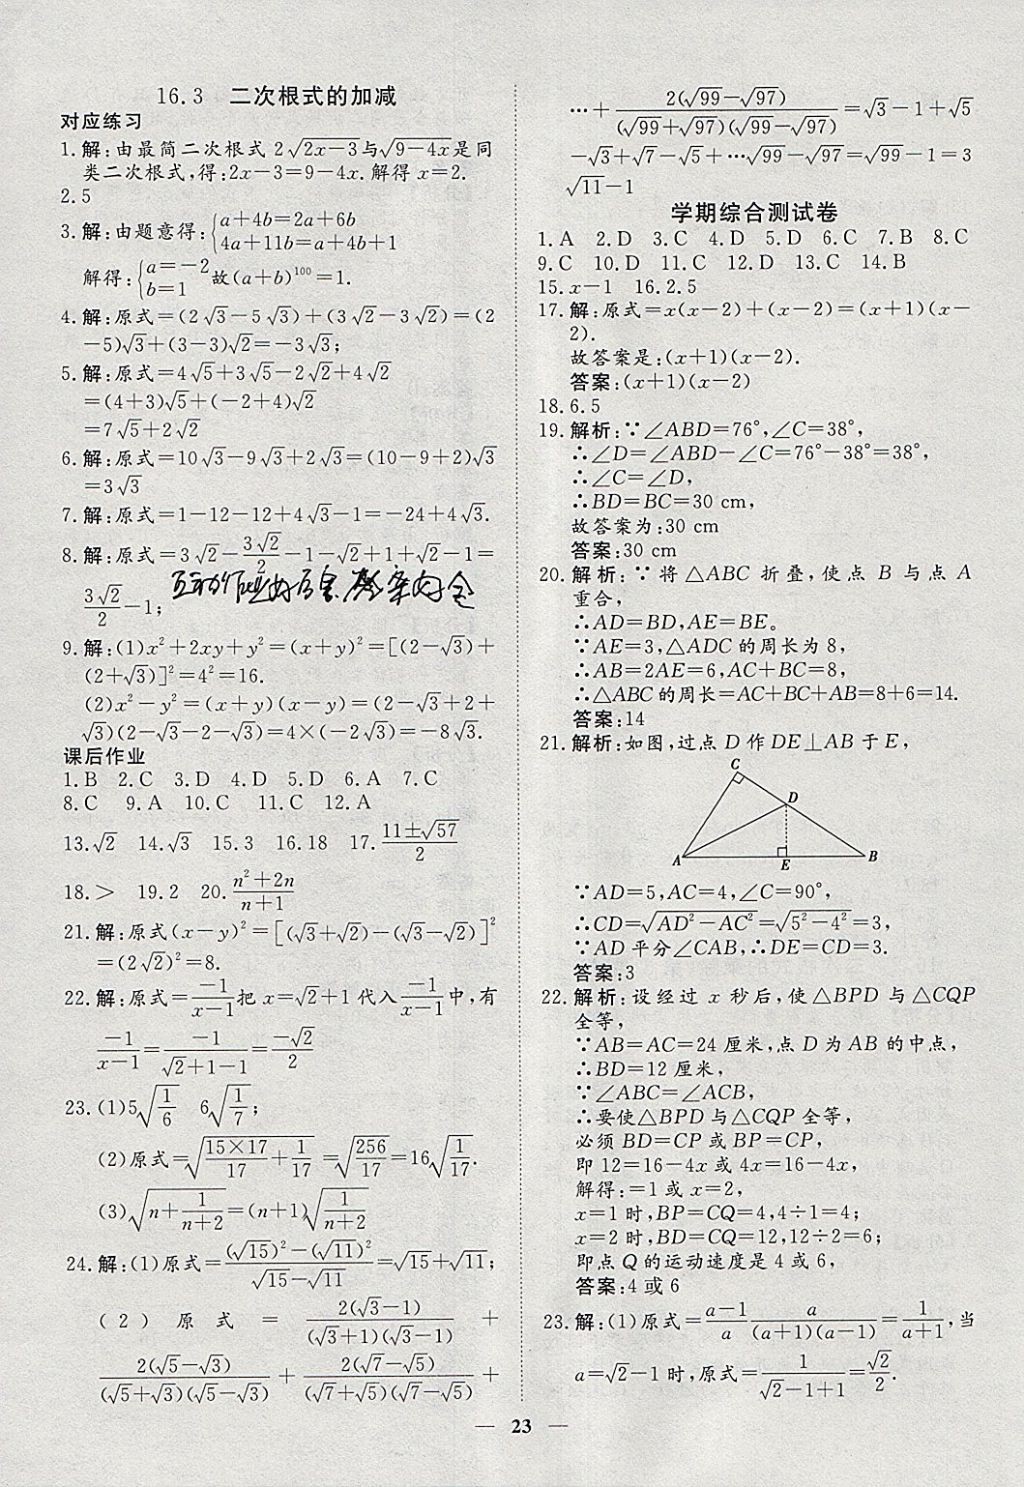 16.3 二次根式的加减
对应练习
1.解:由最简二次根式 2√(2x-3)与√(9-4x)是同
类二次根式,得:2x-3=9-4x.解得 x=2.
2.5
3.解:由题意得:{a+4b=2a+6b
4a+11b=a+4b+1
解得:{a=-2
b=1 故(a+b)¹⁰⁰=1.
4.解:原式=(2√3-5√3)+(3√2-3√2)=(2
-5)√3+(3-3)√2=-3√3;
5.解:原式=4√5+3√5-2√2+4√2
=(4+3)√5+(-2+4)√2
=7√5+2√2
6.解:原式=10√3-9√3+2√3=(10-9+2)√3
=3√3
7.解:原式=1-12-12+4√3-1=-24+4√3.
8.解:原式=3√2-3√2/2-1-√2+1+√2-1=
3√2/2-1;
9.解:(1)x²+2xy+y²=(x+y)²=[(2-√3)+
(2+√3)]²=4²=16.
(2)x²-y²=(x+y)(x-y)=(2-√3+2+
√3)(2-√3-2-√3)=4×(-2√3)=-8√3.
课后作业
1.B 2.C 3.D 4.D 5.D 6.A 7.C
8.C 9.A 10.C 11.C 12.A
13.√2 14.√3 15.3 16.18 17.(11±√57)/2
18.> 19.2 20.(n²+2n)/(n+1)
21.解:原式(x-y)²=[(√3+√2)-(√3-√2)]²
=(2√2)²=8.
22.解:原式=-1/(x-1)把 x=√2+1代入-1/(x-1)中,有
-1/(x-1)=-1/(√2+1-1)=-√2/2
23.(1)5√(1/6) 6√(1/7);
(2)原式=√((15×17)/17+1/17)=√(256/17)=16√(1/17).
(3)√(n+1/(n+2))=(n+1)√(1/(n+2))
24.解:(1)原式=((√15)²-(√11)²)/(√15-√11)=√15+√11;
(2)原式=2(√3-1)/((√3+1)(√3-1))+
2(√5-√3)/((√5+√3)(√5-√3))+2(√7-√5)/((√7+√5)(√7-√5))+
…+2(√99-√97)/((√99+√97)(√99-√97))=√3-1+√5
-√3+√7-√5+…√99-√97=√99-1=3
√11-1
学期综合测试卷
1.A 2.D 3.C 4.D 5.D 6.C 7.B 8.C
9.C 10.D 11.C 12.D 13.C 14.B
15.x-1 16.2.5
17.解:原式=x(x-2)+(x-2)=(x+1)(x-
2).
故答案是:(x+1)(x-2).
答案:(x+1)(x-2)
18.6.5
19.解析:∵∠ABD=76°,∠C=38°,
∴∠D=∠ABD-∠C=76°-38°=38°,
∴∠C=∠D,
∴BD=BC=30 cm,
故答案为:30 cm
答案:30 cm
20.解析:∵将△ABC 折叠,使点 B 与点 A
重合,
∴AD=BD,AE=BE。
∵AE=3,△ADC 的周长为 8,
∴AB=2AE=6,AC+BC=8,
∴△ABC的周长=AC+BC+AB=8+6=14.
答案:14
21.解析:如图,过点 D 作 DE⊥AB 于 E,
C
D
A E B
∵AD=5,AC=4,∠C=90°,
∴CD=√(AD²-AC²)=√(5²-4²)=3,
∵AD 平分∠CAB,∴DE=CD=3.
答案:3
22.解析:设经过 x 秒后,使△BPD 与△CQP
全等,
∵AB=AC=24 厘米,点 D 为 AB 的中点,
∴BD=12 厘米,
∵∠ABC=∠ACB,
∴要使△BPD 与△CQP 全等,
必须 BD=CP 或 BP=CP,
即 12=16-4x 或 4x=16-4x,
解得:=1 或 x=2,
x=1 时,BP=CQ=4,4÷1=4;
x=2 时,BD=CQ=12,12÷2=6;
即点 Q 的运动速度是 4 或 6,
答案:4 或 6
23.解:(1)原式=(a-1)/a a/((a+1)(a-1))=1/(a+1),当
a=√2-1 时,原式=1/(√2-1+1)=√2/2.
— 23 —